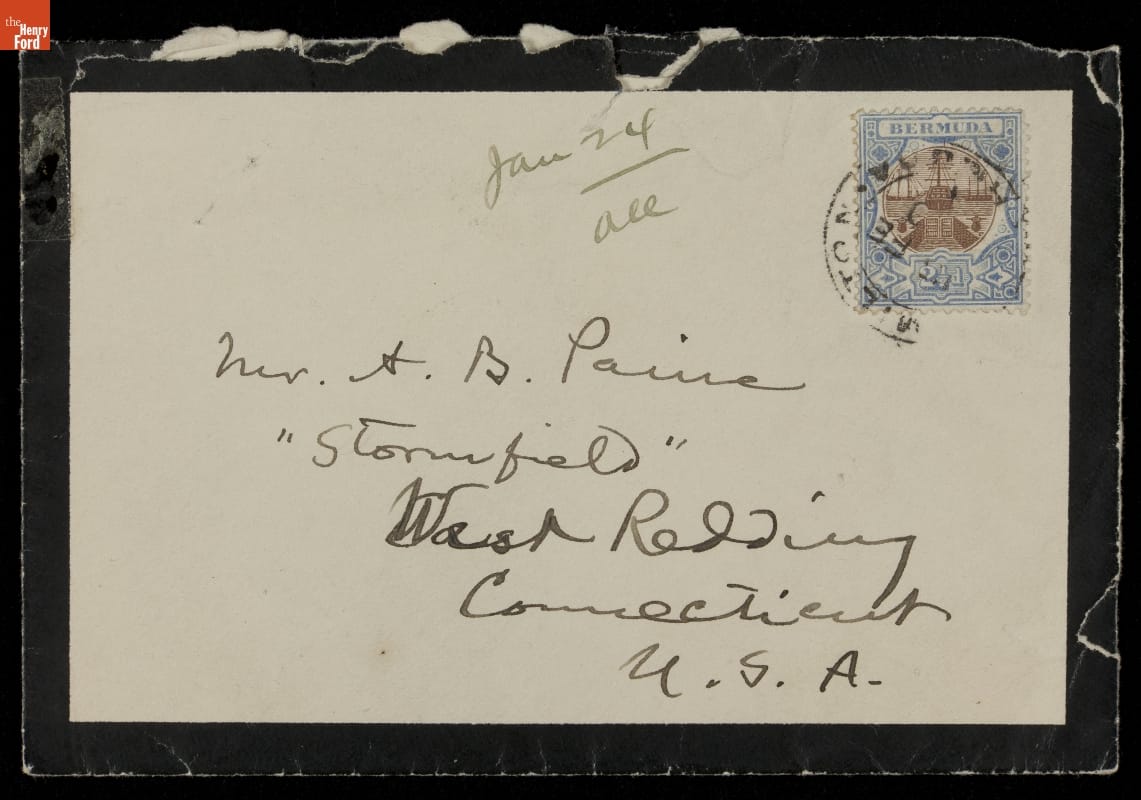 the
Henry
Ford
Jan 24
all
BERMUDA
2½d
Mr. A. B. Paine
"Stormfield"
West Redding
Connecticut
U. S. A.